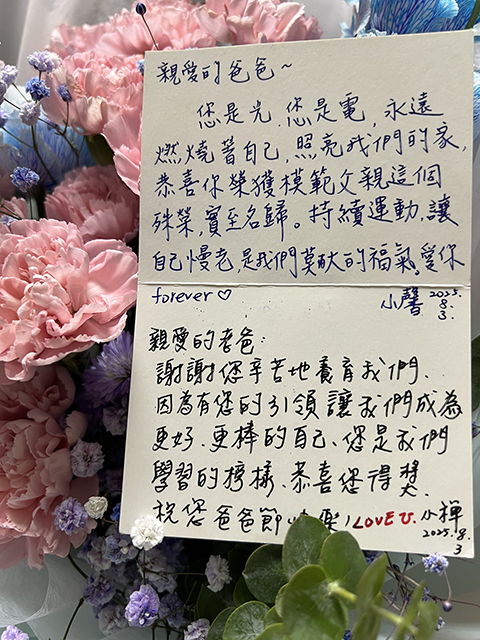 親愛的爸爸~
您是光,您是電,永遠
燃燒著自己,照亮我們的家,
恭喜你榮獲模範父親這個
殊榮,實至名歸。持續運動,讓
自己慢老,是我們莫大的福氣。愛你
forever♡ 小馨 2025.8.3.
親愛的老爸:
謝謝您辛苦地養育我們、
因為有您的引領讓我們成為
更好、更棒的自己、您是我們
學習的榜樣、恭喜您得獎、
祝您爸爸節快樂! LOVE U. 小禪
2025.8.3